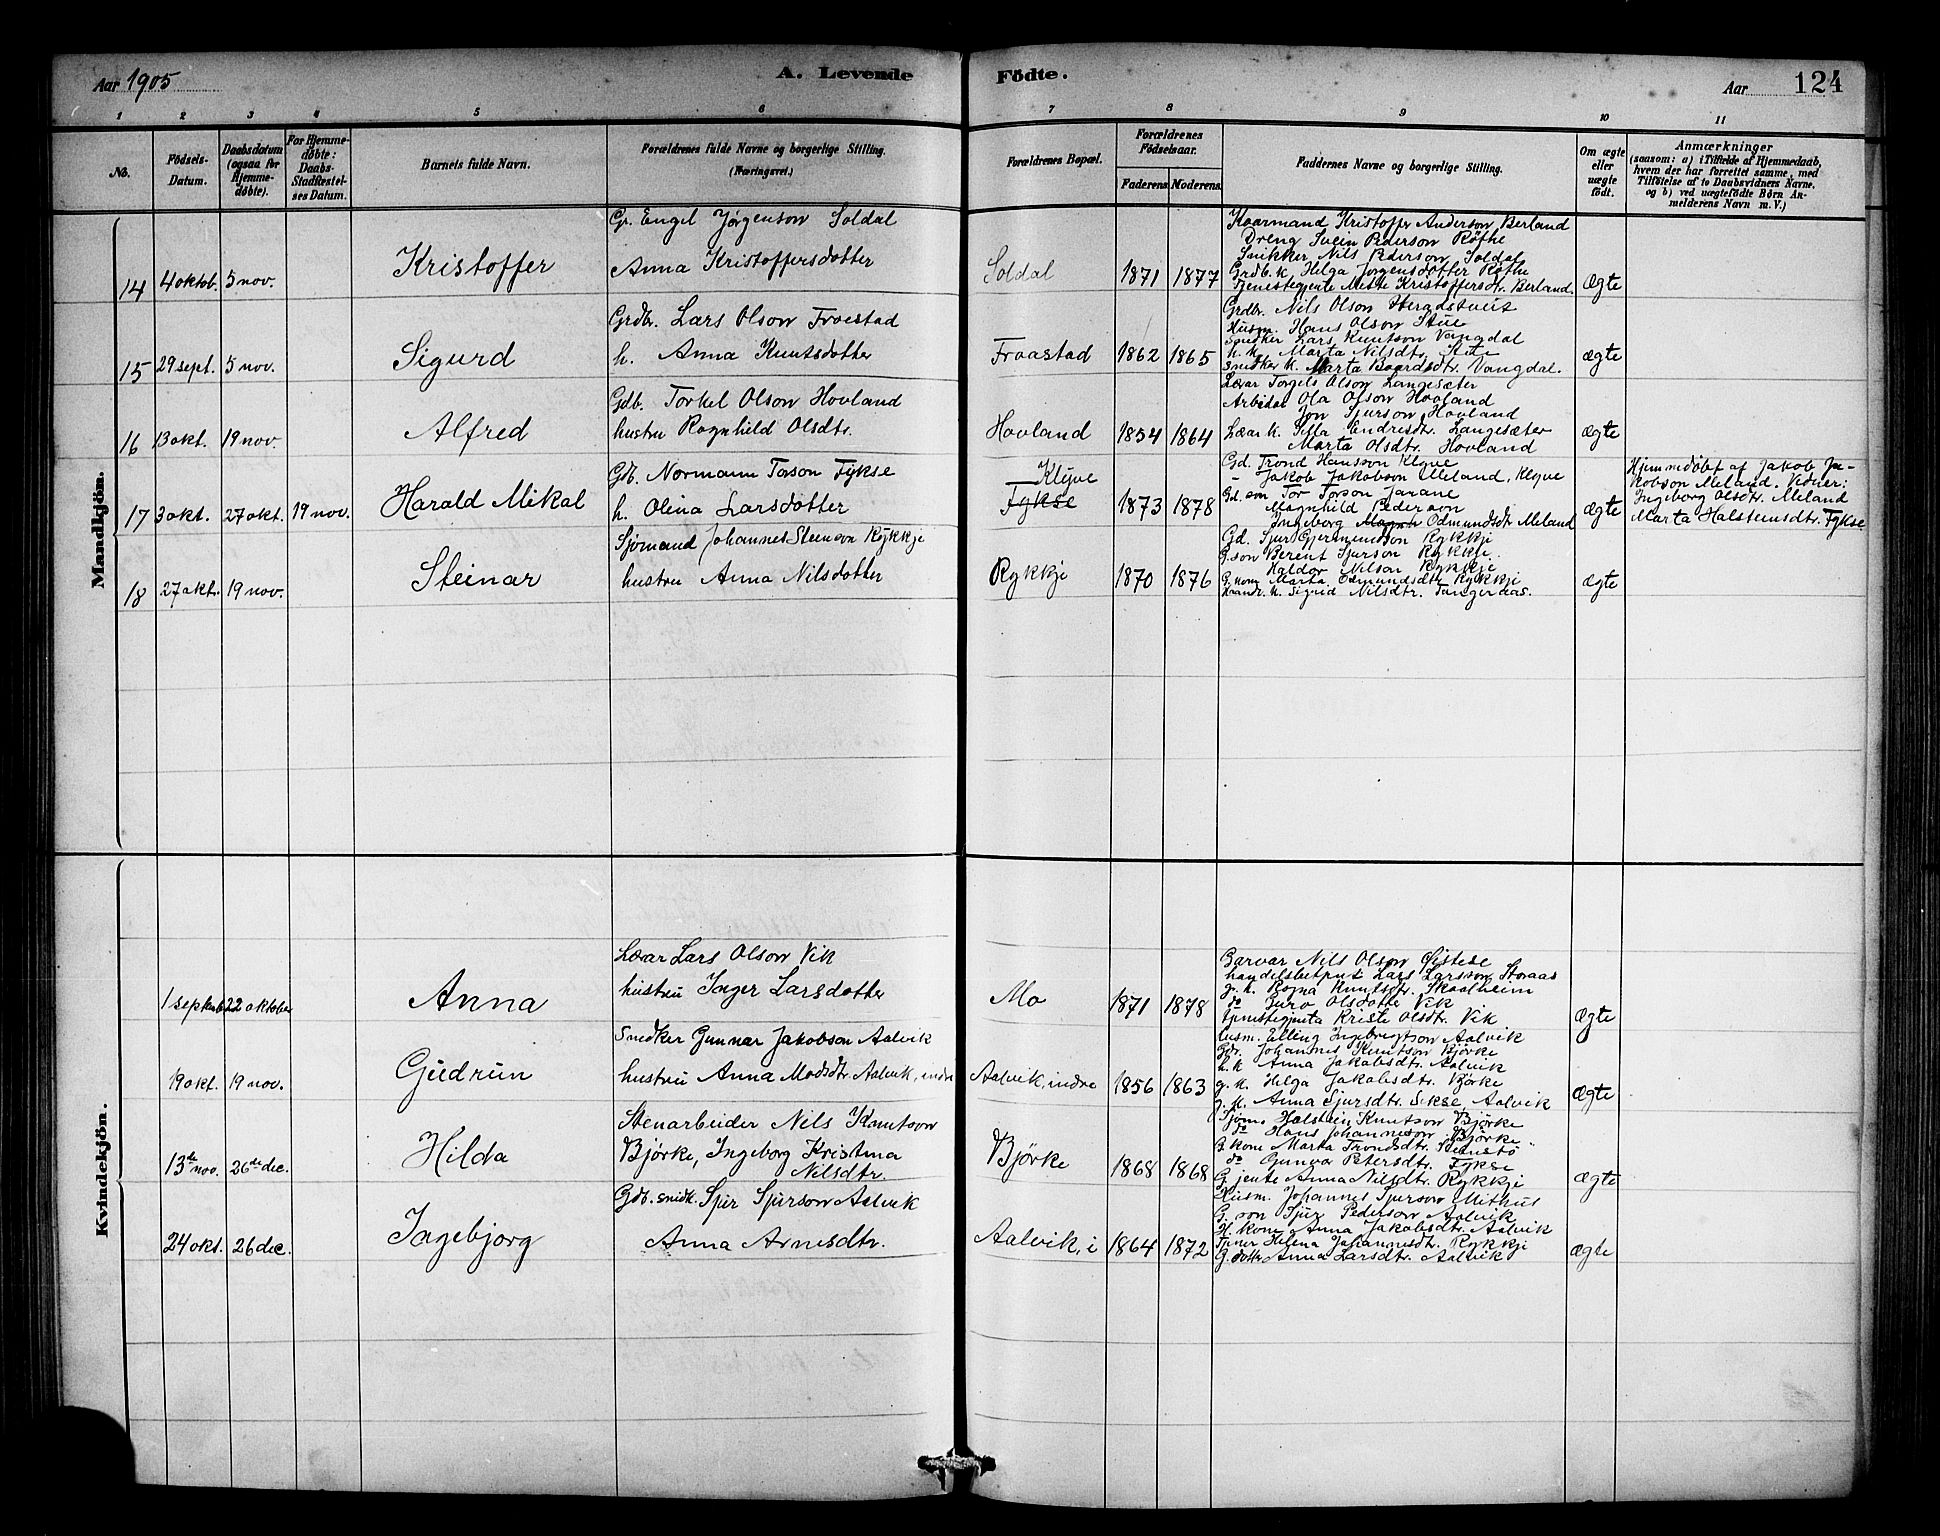 Aar 1905
A. Levende
Födte.
Aar
124
1 2 3 4 5 6 7 8 9 10 11
No.
Födsels-Datum.
Daabsdatum (ogsaa for Hjemmedöbte).
For Hjemmedöbte: Daabs-Stadfæstelses Datum.
Barnets fulde Navn.
Forældrenes fulde Navne og borgerlige Stilling. (Næringsvei.)
Forældrenes Bopæl.
Forældrenes Födselsaar.
Faderens Moderens.
Faddernes Navne og borgerlige Stilling.
Om ægte eller uægte födt.
Anmærkninger (saasom: a) i Tilfælde af Hjemmedaab, hvem der har forrettet samme, med Tilföielse af to Daabsvidners Navne, og b) ved uægtefödte Börn Anmelderens Navn m. V.)
Mandkjön.
14 4 oktob. 5 nov.
Kristoffer
Gr. Engel Jørgenson Soldal
Anna Kristoffersdotter
Soldal 1871 1877
Kaarmand Kristoffer Anderson Berland
Dreng Svein Pederson Røthe
Snikker Nils Pederson Soldal
Grdb. k. Helga Jørgensdotter Røthe
Tjenestegjente Mette Kristoffersdtr. Berland.
Ægte
15 29 sept. 5 nov.
Sigurd
Grdbr. Lars Olson Froestad
h. Anna Knutsdotter
Froastad 1862 1865
Grdbr. Nils Olson Steradstveit
Husm. Hans Olson Stue
Snedker Lars Knutson Vangdal
h. k. Marta Nilsdtr. Stue
Snedker k. Marta Baardsdtr. Vangdal.
ægte
16 13 okt. 19 nov.
Alfred
Gdb. Torkel Olson Hovland
hustru Ragnhild Olsdtr.
Hovland 1854 1864
Lærar Torgels Olson Langesæter
Arbeidar Ola Olson Hovland
Jon Sjurson Hovland
Lærar k. Silla Endresdtr. Langesæter
Marta Olsdtr. Hovland
ægte
17 3 okt. 27 okt. 19 nov.
Harald Mikal
Gdb. Normann Torson Fykse
h. Olina Larsdotter
Klyve
Fykse 1873 1878
Gd. Trond Hansson Klyve
" Jakob Jakobson Meland, Klyve
Gd. son Tor Torson Jarane
Magnhild Pederson
Ingeborg Magnh Odmundsdtr Meland
ægte
Hjemmedøbt af Jakob Ja-
kobson Meland. Vidner:
Ingeborg Olsdtr. Meland
Marta Halsteinsdtr. Fykse
18 27 okt. 19 nov.
Steinar
Sjømand Johannes Steinson Rykkje
hustru Anna Nilsdotter
Rykkje 1870 1876
Gd. Sjur Gjermundson Rykkje
G. son Berent Sjurson Rykkje.
Haldor Nilson Rykkje
G. kone Marta Odmundsdtr Rykkje
Handl. k. Sigrid Nilsdtr. Tangeraas.
ægte
Kvindekjön.
1 september 22 oktober
Anna
Lærar Lars Olson Vik
hustru Inger Larsdotter
Mo 1871 1878
Garvar Nils Olson Øistese
handelsbetjnt Lars Larsson Storaas
g. k. Ragna Knutsdtr. Skaalheim
do Guro Olsdotter Vik
tjenestegjenta Kristi Olsdtr. Vik
Ægte
19 okt. 19 nov.
Gudrun
Snedker Gunnar Jakobson Aalvik
hustru Anna Madsdtr. Aalvik, indre
Aalvik, indre 1856 1863
Husm. Elling Ingebrigtson Aalvik
Gdr. Johannes Knutson Bjørke
h. k Anna Jakobsdtr. Aalvik
g. k. Helga Jakobsdtr. Bjørke
g. k. Anna Sjursdtr. Sekse Aalvik
Ægte
13de nov. 26de dec.
Hilda
Stenarbeider Nils Knutson
Bjørke, Ingeborg Kristina
Nilsdtr.
Bjørke 1868 1868
Sjøm. Halstein Knutson Bjørke
do Hans Johanneson Bjørke
G. kone Marta Trondsdtr.
do Gunvor Petersdtr. Fykse
G. jente Anna Nilsdtr. Rykkje
Ægte
24 okt. 26 dec.
Ingebjorg
Gdb. snidk. Sjur Sjurson Aalvik
Anna Arnesdtr.
Aalvik, i 1864 1872
Husm. Johannes Sjurson Mithus
G. son Sjur Pederson Aalvik
H. kone Anna Jakobsdtr. Aalvik
Helena Johannesdtr. Rykkje
G. dotter Anna Larsdtr. Aalvik
ægte